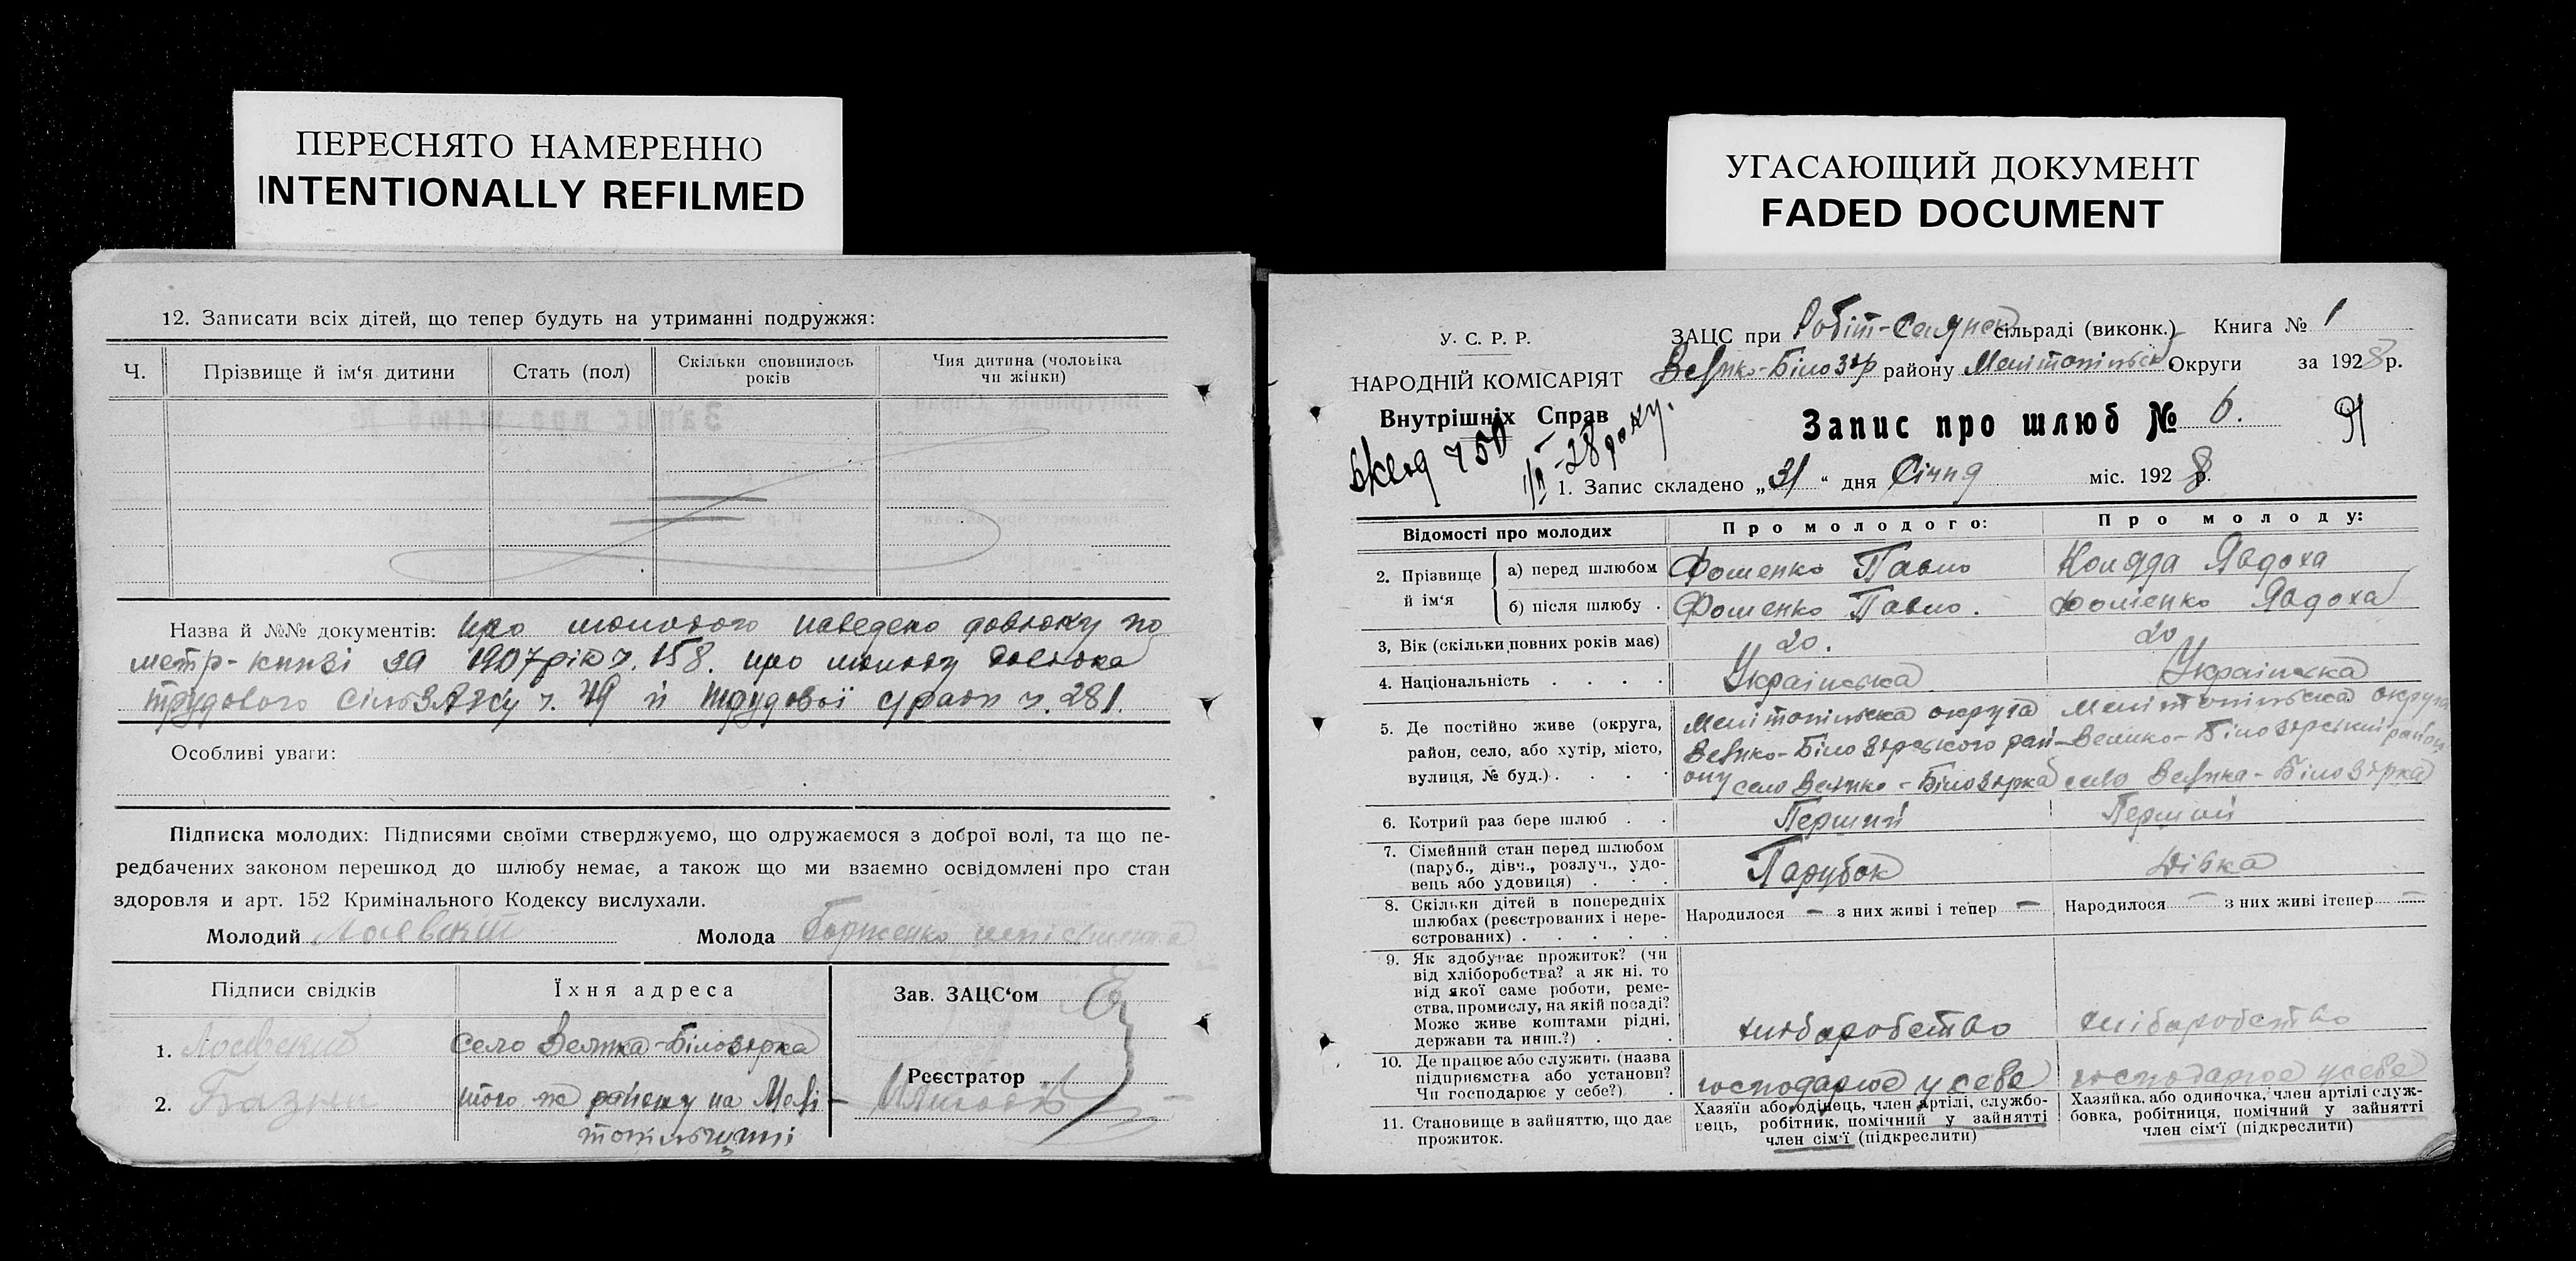 ПЕРЕСНЯТО НАМЕРЕННО
INTENTIONALLY REFILMED
12. Записати всіх дітей, що тепер будуть на утриманні подружжя:
Ч.
Прізвище й ім‘я дитини
Стать (пол)
Скільки сповнилось
років
Чия дитина (чоловіка
чи жінки)
Назва й №№ документів: про молодого наведено довідку по
метр-книзі за 1907 рік ч. 158. про молоду довідка
трудового ч. 49 й трудової ч. 281.
Особливі уваги:
Підписка молодих: Підписями своїми стверджуємо, що одружаємося з доброї волі, та що пе-
редбачених законом перешкод до шлюбу немає, а також що ми взаємно освідомлені про стан
здоровля и арт. 152 Кримінального Кодексу вислухали.
Молодий
Молода
Підписи свідків
Їхня адреса
Зав. ЗАЦС‘ом
1.
село Велика-Білозерка
2.
того ж району на Мелі-
топільщині
Реєстратор
УГАСАЮЩИЙ ДОКУМЕНТ
FADED DOCUMENT
У. С. Р. Р.
НАРОДНІЙ КОМІСАРІЯТ
Внутрішніх Справ
ЗАЦС при Робіт-Селянськ сільраді (виконк.) Книга № 1
Велико-Білозер району Мелітопільськ Округи за 1928 р.
Запис про шлюб № 6.
91
28 року.
1. Запис складено „31“ дня Січня міс. 1928 р.
Відомості про молодих
Про молодого:
Про молоду:
2. Прізвище
й ім‘я
а) перед шлюбом
Фоменко Павло
Явдоха
б) після шлюбу
Фоменко Павло.
Фоменко Явдоха
3, Вік (скільки повних років має)
20.
20
4. Національність
Українська
Українська
5. Де постійно живе (округа,
район, село, або хутір, місто,
вулиця, № буд.)
Мелітопільська округа
Велико-Білозерського рай-
ону село Велико-Білозерка
Мелітопільська округа
Велико-Білозерський район
село Велика-Білозерка
6. Котрий раз бере шлюб
Перший
Перший
7. Сімейний стан перед шлюбом
(паруб., дівч., розлуч., удо-
вець або удовиця)
Парубок
Дівка
8. Скільки дітей в попередніх
шлюбах (реєстрованих і нере-
єстрованих)
Народилося — з них живі і тепер —
Народилося — з них живі ітепер —
9. Як здобуває прожиток? (чи
від хліборобства? а як ні. то
від якої саме роботи, реме-
ства, промислу, на якій посаді?
Може живе коштами рідні,
держави та инш.?)
хліборобство
хліборобство
10. Де працює або служить (назва
підприємства або установи?
Чи господарює у себе?)
господарює у себе
господарює у себе
11. Становище в зайняттю, що дає
прожиток.
Хазяїн або одінець, член артілі, службо-
вець, робітник, помічний у зайнятті
член сім‘ї (підкреслити)
Хазяйка, або одиночка, член артілі служ-
бовка, робітниця, помічний у зайнятті
член сім‘ї (підкреслити)